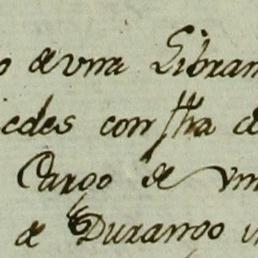 o de vna Libran
iedes consta de
Cargo de vn
de Durango